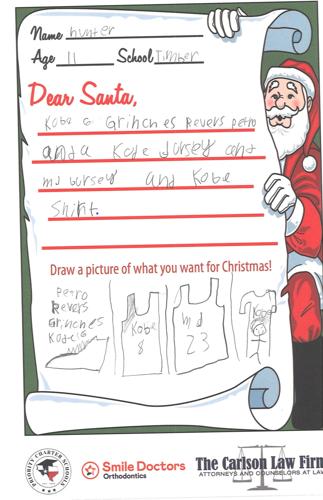 Name hunter
Age 11 School Timber
Dear Santa,
Kobe 6 Grinches Revers Petro
and a Kobe Jursey and
mJ Gursey and Kobe
Shirt.
Draw a picture of what you want for Christmas!
Petro
Revers
Grinches
Kobe 6
Kobe
8
md
23
Kobe
PRIORITY CHARTER SCHOOLS
Smile Doctors
Orthodontics
The Carlson Law Firm
ATTORNEYS AND COUNSELORS AT LAW